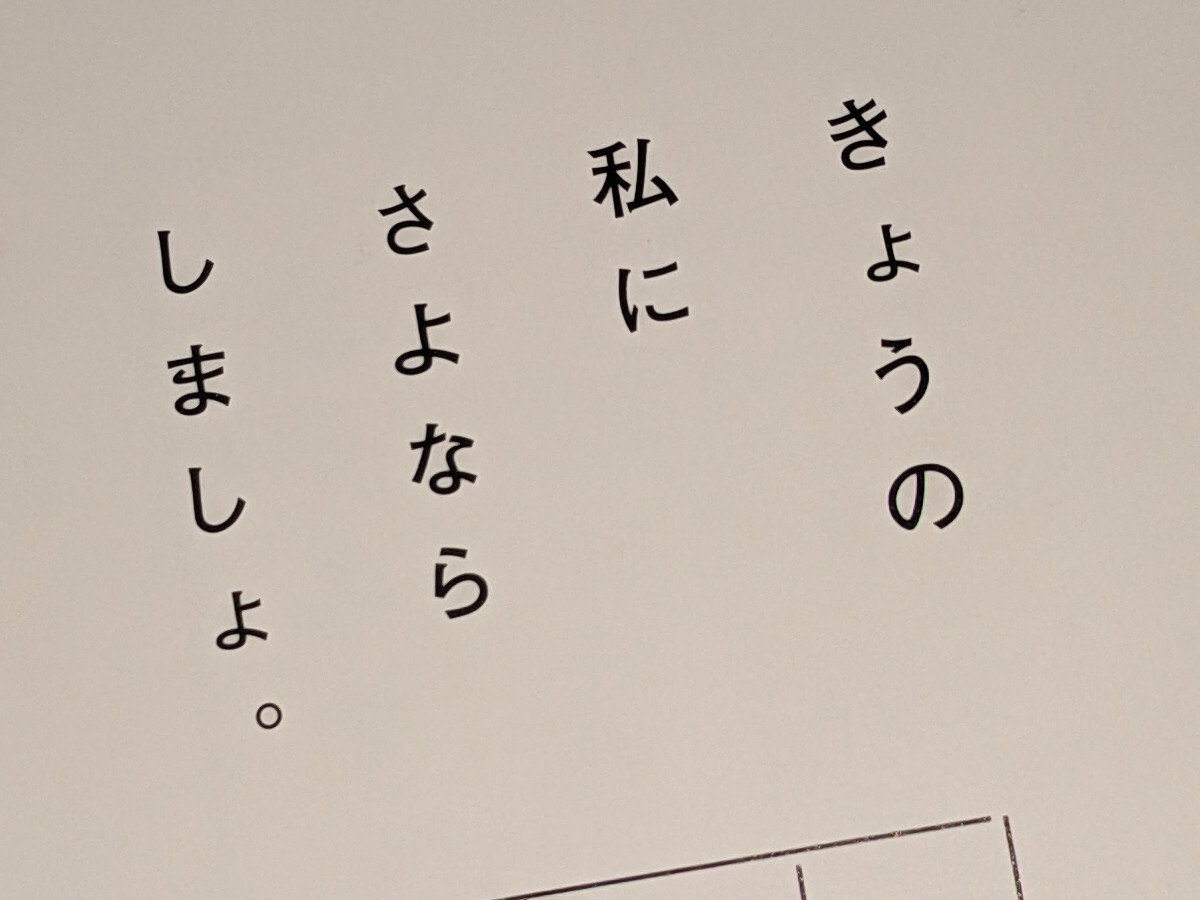 きょうの
私に
さよなら
しましょ。